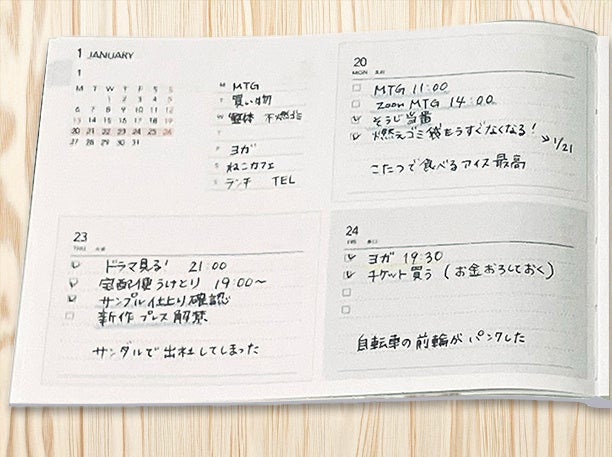 1 JANUARY
1
M T W T F S S
1 2 3 4 5
6 7 8 9 10 11 12
13 14 15 16 17 18 19
20 21 22 23 24 25 26
27 28 29 30 31
M MTG
T 買い物
W 整体 不燃ゴミ
T
F ヨガ
S ねこカフェ
S ランチ TEL
20
MON 大安
MTG 11:00
zoom MTG 14:00
そうじ当番
燃えゴミ袋もうすぐなくなる!
→1/21
こたつで食べるアイス最高
23
THU
ドラマ見る! 21:00
宅配便うけとり 19:00~
サンプル仕上り確認
新作プレス解禁
サンダルで出社してしまった
24
FRI
ヨガ 19:30
チケット買う (お金おろしておく)
自転車の前輪がパンクした